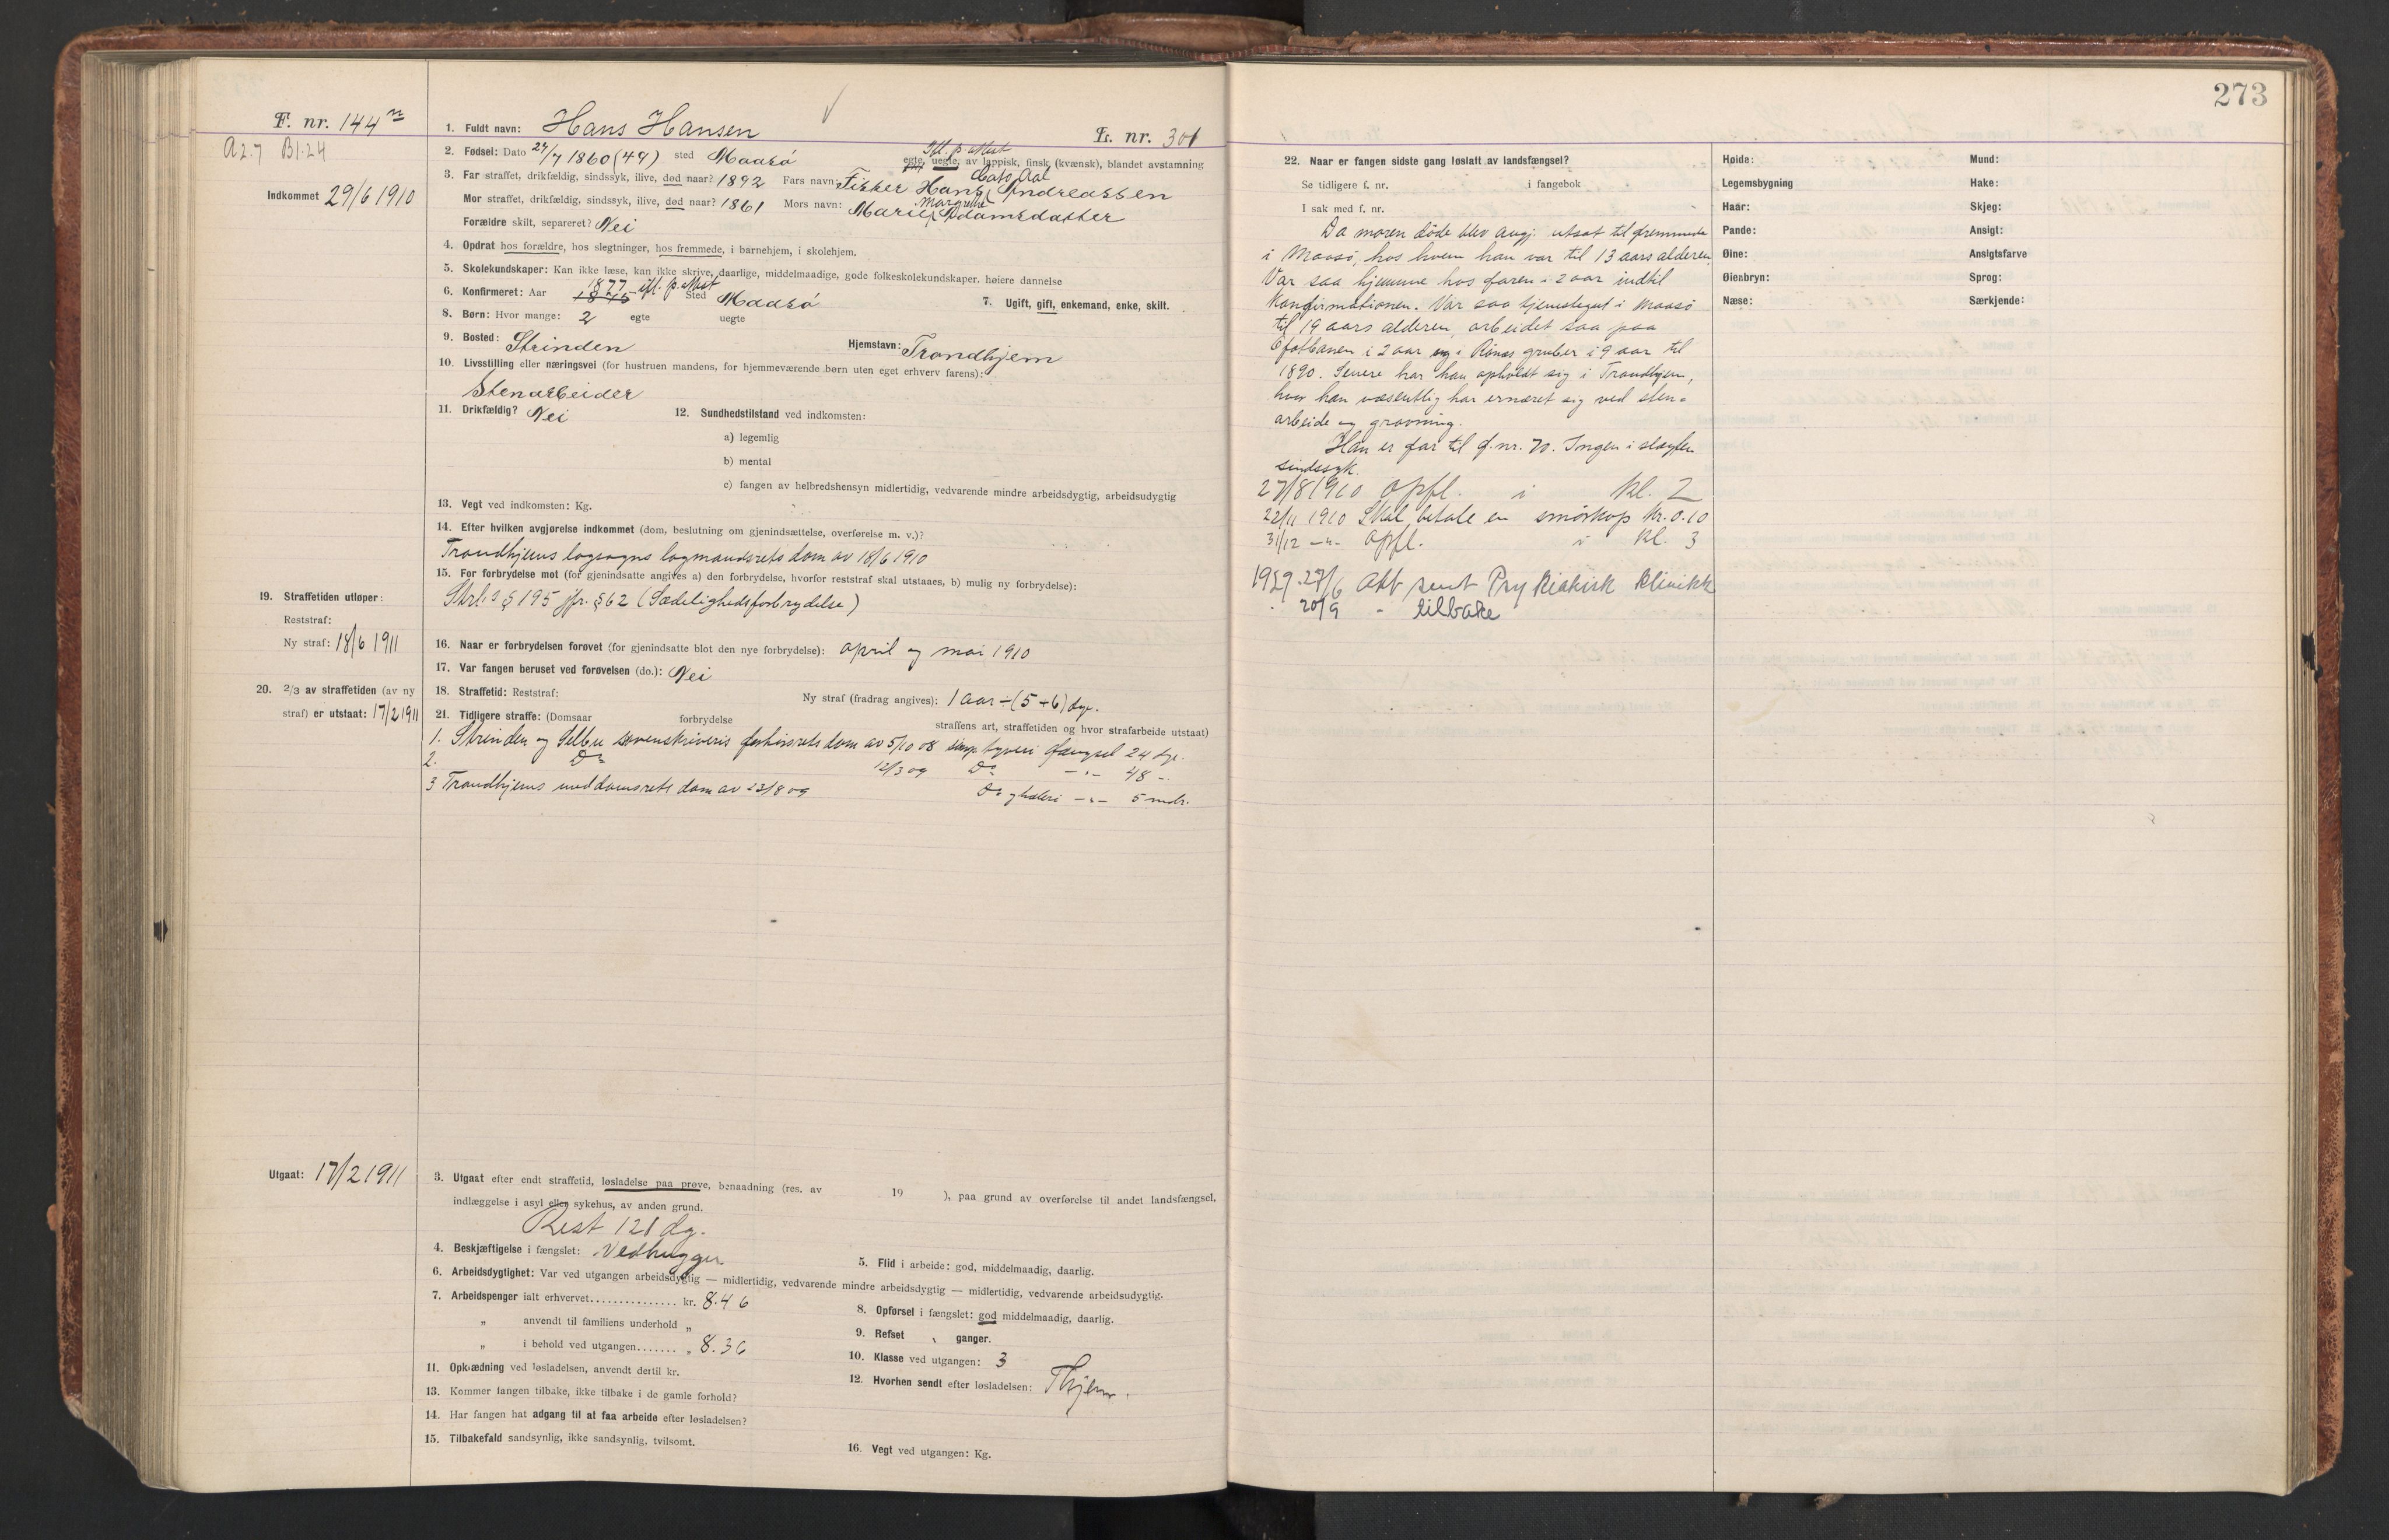 273
F. nr. 144
A 2.7 B1.24
Indkommet 29/6 1910
1. Fuldt navn: Hans Hansen
L. nr. 301
Ifl. p. attest
2. Fødsel: Dato 24/7 1860 (49) sted Maasö egte, uegte, av lappisk, finsk, (kvænsk), blandet avstamning
3. Far straffet, drikfældig, sindssyk, ilive, død naar? 1892 Fars navn: Fisker Hans Andreassen
Mor straffet, drikfældig, sindssyk, ilive, død naar? 1861 Mors navn: Marie Margrethe Adamsdatter
Forældre skilt, separeret? Nei
4. Opdrat hos forældre, hos slegtninger, hos fremmede, i barnehjem, i skolehjem.
5. Skolekundskaper: Kan ikke læse, kan ikke skrive, daarlige, middelmaadige, gode folkeskolekundskaper. høiere dannelse
1877 ifl. p. attest
6. Konfirmeret: Aar 1875 Sted Maasö 7. Ugift, gift, enkemand, enke, skilt.
8. Børn: Hvor mange: 2 egte uegte
9. Bosted: Strinden Hjemstavn: Trondhjem
10. Livsstilling eller næringsvei (for hustruen mandens, for hjemmeværende børn uten eget erhverv farens):
Stenarbeider
11. Drikfældig? Nei 12. Sundhedstilstand ved indkomsten:
a) legemlig
b) mental
c) fangen av helbredshensyn midlertidig, vedvarende mindre arbeidsdygtig, arbeidsudygtig
13. Vegt ved indkomsten: Kg.
14. Efter hvilken avgjørelse indkommet (dom, beslutning om gjenindsættelse, overførelse m. v.)?
Trondhjems lagsogns lagmandsrets dom av 18/6 1910
15. For forbrydelse mot (for gjenindsatte angives a) den forbrydelse, hvorfor reststraf skal utstaaes, b) mulig ny forbrydelse):
Strl.s § 195 jfr. § 62 (Sædelighedsforbrydelse)
19. Straffetiden utløper:
Reststraf:
Ny straf: 18/6 1911
16. Naar er forbrydelsen forøvet (for gjenindsatte blot den nye forbrydelse): april og mai 1910
17. Var fangen beruset ved forøvelsen (do.): Nei
20. 2/3 av straffetiden (av ny
straf) er utstaat: 17/2 1911
18. Straffetid: Reststraf: Ny straf (fradrag angives): 1 aar ÷ (5+6) dge.
21. Tidligere straffe: (Domsaar forbrydelse straffens art, straffetiden og hvor strafarbeide utstaat)
1. Strinden og Selbu sorenskriveris forhörsrets dom av 5/10 08 simp. tyveri fængsel 24 dge.
2. Do 12/3 09 Do -"- 48 -
3 Trondhjems meddomsrets dom av 23/8 09 Do og hæleri -"- 5 mdr.
Utgaat: 17/2 1911
3. Utgaat efter endt straffetid, løsladelse paa prøve, benaadning (res. av 19 ), paa grund av overførelse til andet landsfængsel,
indlæggelse i asyl eller sykehus, av anden grund.
Rest 121 dg.
4. Beskjæftigelse i fængslet: Vedhugger 5. Flid i arbeide: god, middelmaadig, daarlig.
6. Arbeidsdygtighet: Var ved utgangen arbeidsdygtig — midlertidig, vedvarende mindre arbeidsdygtig — midlertidig, vedvarende arbeidsudygtig.
7. Arbeidspenger ialt erhvervet............... kr. 8.46
8. Opførsel i fængslet: god middelmaadig, daarlig.
„ anvendt til familiens underhold „
9. Refset ganger.
„ i behold ved utgangen....... „ 8.36
10. Klasse ved utgangen: 3
11. Opklædning ved løsladelsen, anvendt dertil kr.
12. Hvorhen sendt efter løsladelsen: Thjem.
13. Kommer fangen tilbake, ikke tilbake i de gamle forhold?
14. Har fangen hat adgang til at faa arbeide efter løsladelsen?
15. Tilbakefald sandsynlig, ikke sandsynlig, tvilsomt.
16. Vegt ved utgangen: Kg.
22. Naar er fangen sidste gang løslatt av landsfængsel?
Se tidligere f. nr. i fangebok
I sak med f. nr.
Da moren döde blev angj. utsat til fremmede
i Maasö, hos hvem han var til 13 aars alderen.
Var saa hjemme hos faren i 2 aar indtil
konfirmationen. Var saa tjenestegut i Maasö
til 19 aars alderen, arbeidet saa paa
Ofotbanen i 2 aar og i Rönäs gruber i 9 aar til
1890. Senere har han opholdt sig i Trondhjem,
hvor han væsentlig har ernæret sig ved sten-
arbeide og gravning.
Han er far til f. nr. 70. Ingen i slægten
sindssyk.
27/8 1910 Opfl. i kl. 2
22/11 1910 Skal betale en smörkop kr. 0.10
31/12 -"- Opfl. i kl. 3
1929 27/6 Akt sent Psykiatrisk klinikk
" 20/9 - tilbake
Høide: Mund:
Legemsbygning Hake:
Haar: Skjeg:
Pande: Ansigt:
Øine: Ansigtsfarve
Øienbryn: Sprog:
Næse: Særkjende: